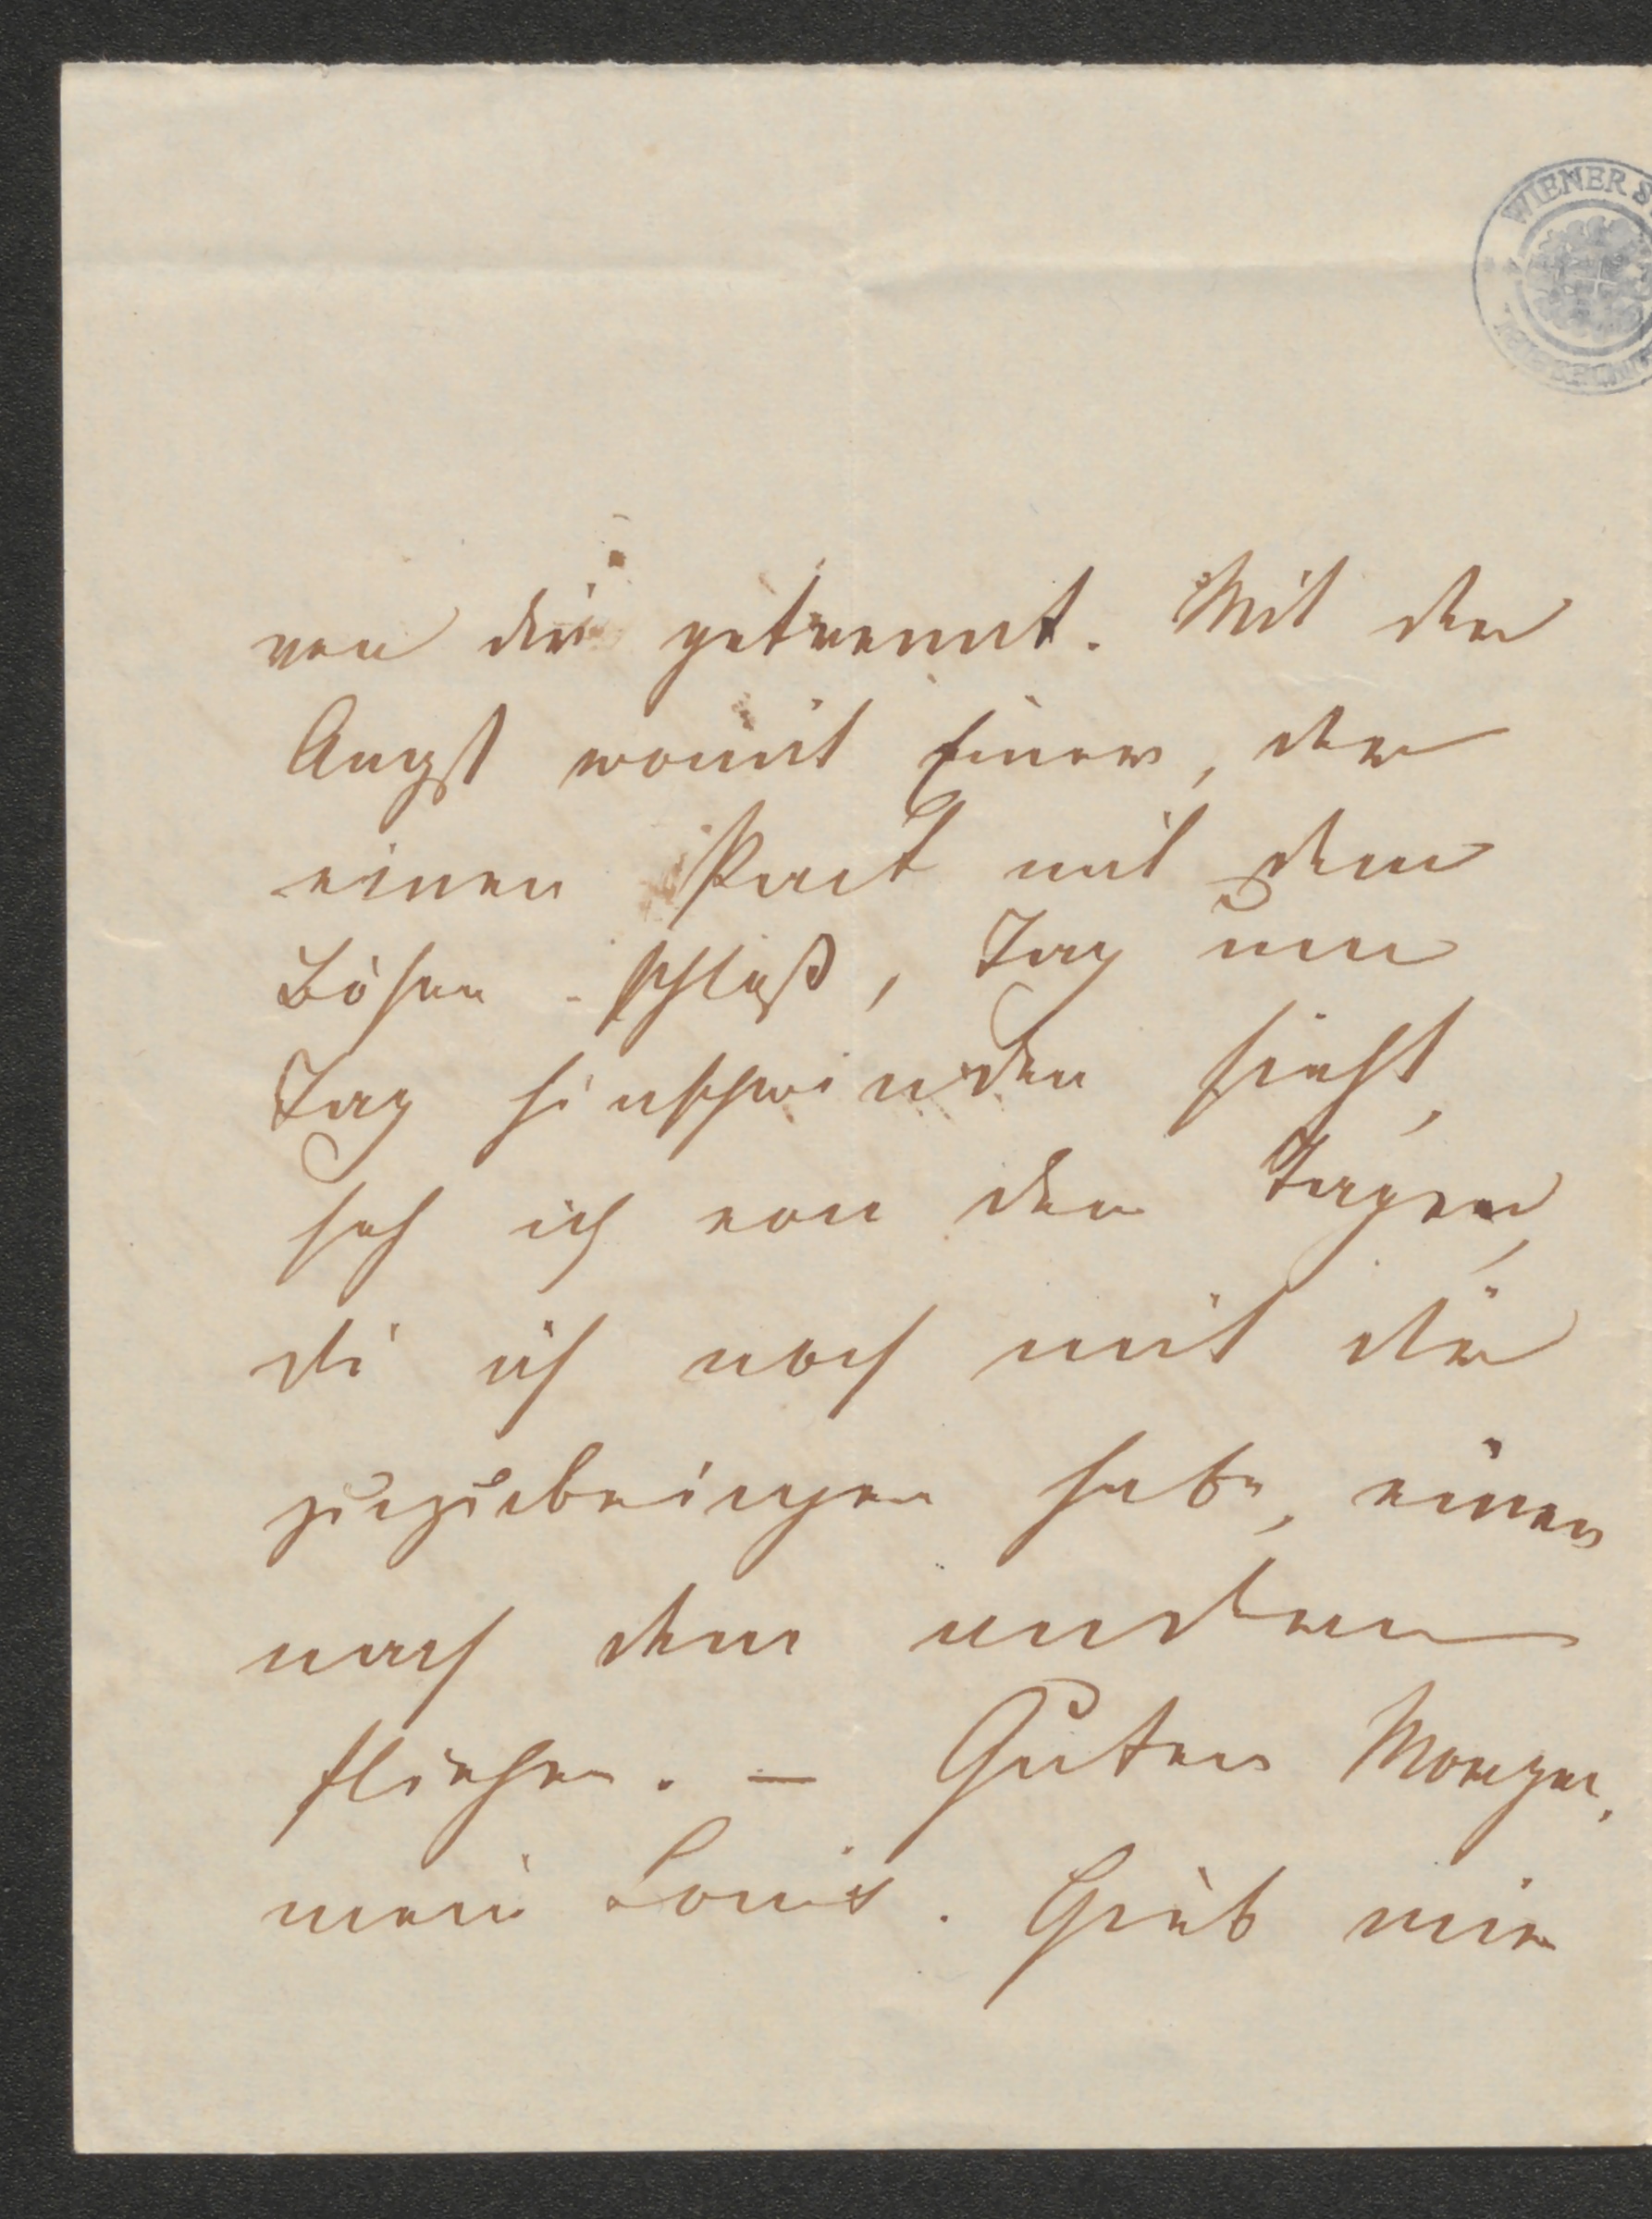 WIENER S
von dir getrennt. Mit der
Angst womit Einer, der
einen Pact mit dem
Bösen schloß, Tag um
Tag hinschwinden sieht,
seh ich von den Tagen,
di ich noch mit dir
zuzubringen habe, einen
nach dem andern
fliehen. – Guten Morgen,
mein Louis. Gieb mir